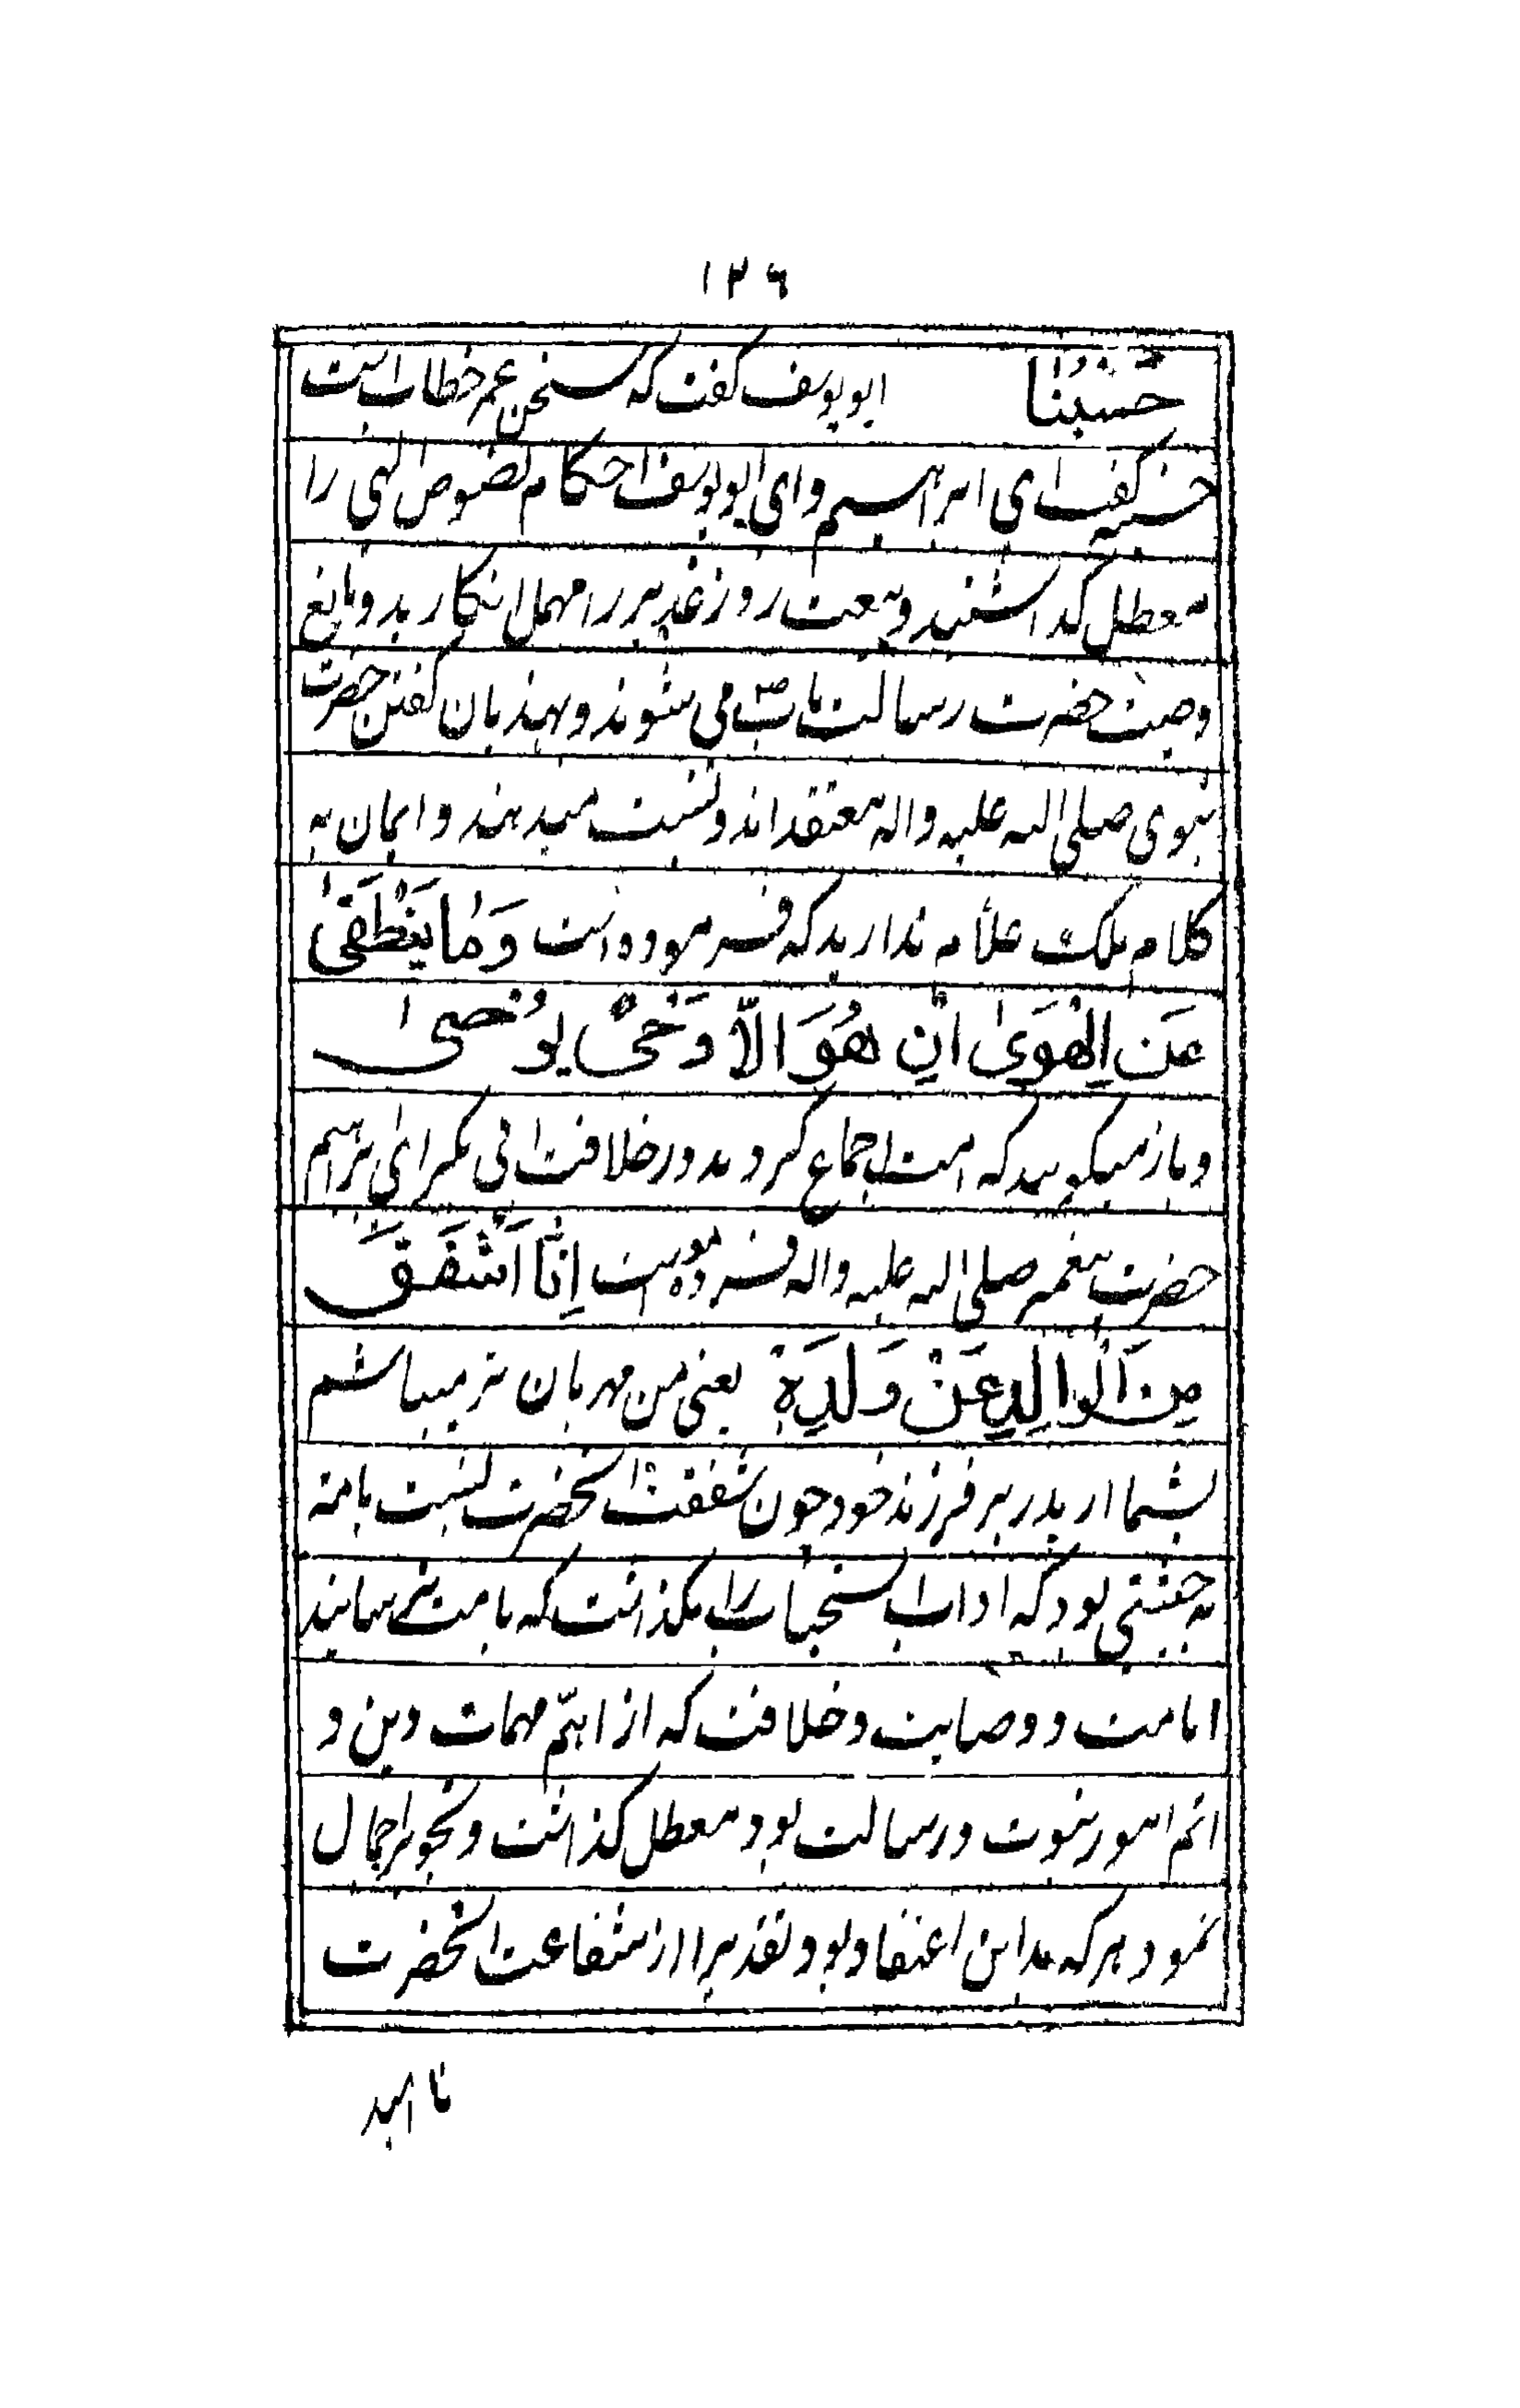 ۱۲۶
حَسْبُنَا ابو یوسف گفت که سخن عمر خطاب است
حسنیه گفت ای ابراهیم وای ابویوسف احکام نصوص الهی را
معطل گذاشتید و بیعت روز غدیر را مهمل انکارید و مانع
وصیت حضرت رسالت مابؐ می شوند و بهذیان گفتن حضرت
نبوی صلی الله علیه واله معتقد اند و نسبت میدهند و ایمان به
کلام ملک علّام ندارید که فرموده است وَمٰا یَنْطِقُ
عَنِ الْهَوىٰ اِنْ هُوَ اِلّا وَحْیٌ یُوحیٰ
و باز میگویید که امت اجماع کردند در خلافت ابی بکر ای ابراهیم
حضرت پیغمبر صلی الله علیه واله فرموده است اِنّٰا اَشْفَقُ
مِنَ الْوالِدِ عَنْ وَلَدِهِ یعنی من مهربان تر میباشم
بشما از پدر بر فرزند خود چون شفقت آنحضرت نسبت بامت
به حیثیتی بود که اداب مستحبات را نگذاشت که بامت نرسانید
امامت و وصایت و خلافت که از اهمّ مهمات دین و
اتم امور نبوت و رسالت بود معطل گذاشت و تجویز اجمال
نمود هر که بداین اعتقاد بود تقدیرا از شفاعت آنحضرت
نا امید